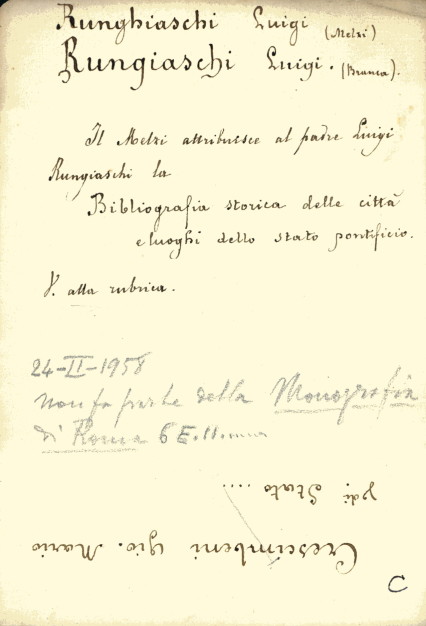 Runghiaschi Luigi (Melzi)
Rungiaschi Luigi. (Branca).
Il Melzi attribuisce al padre Luigi
Rungiaschi la
Bibliografia storica delle città
e luoghi dello stato pontificio.
V. alla rubrica.
24-II-1958
non fa parte della Monografia
di Roma 6 E.11.
di Stato ....
Crescimbeni Gio. Mario
C